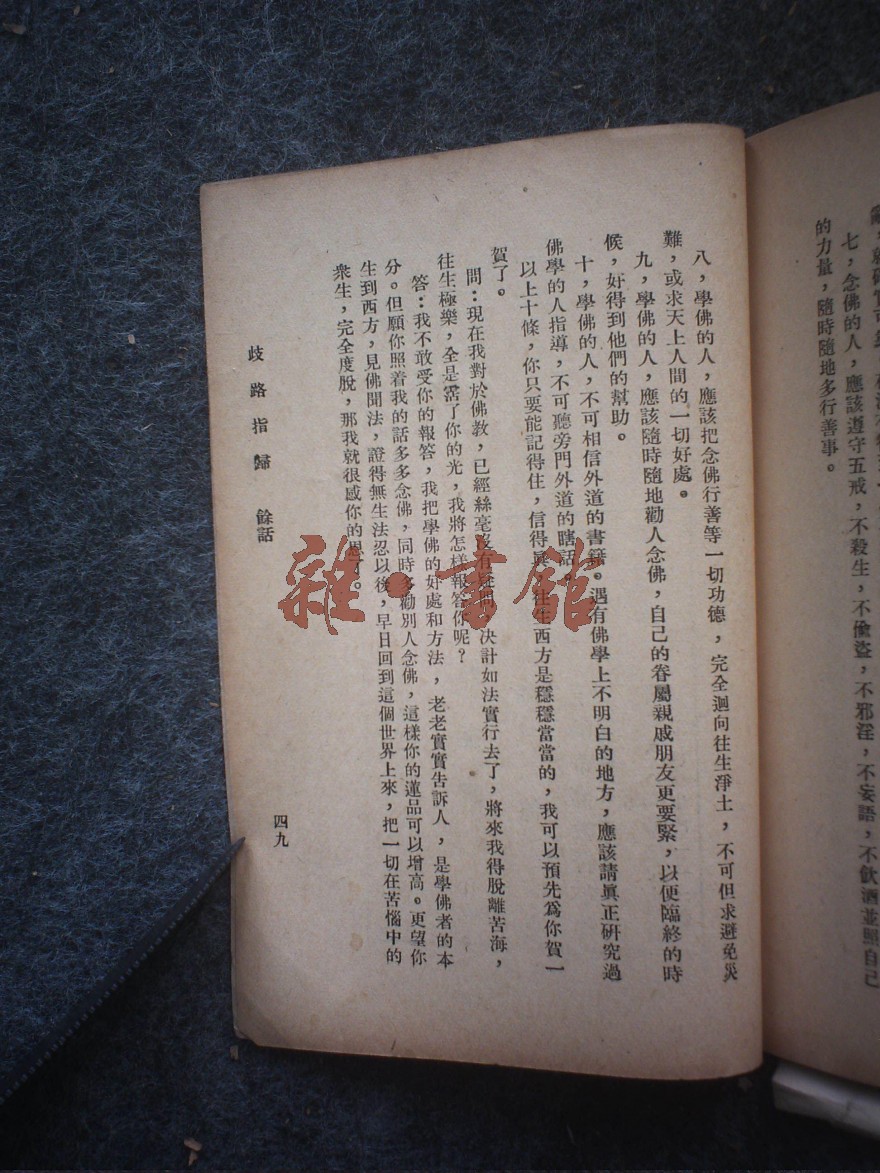 七，念佛的人，應該遵守五戒，不殺生，不偷盜，不邪淫，不妄語，不飲酒並照自己
的力量，隨時隨地多行善事。
八，學佛的人，應該把念佛行善等一切功德，完全迴向往生淨土，不可但求避免災
難，或求天上人間的一切好處。
九，學佛的人，應該隨時隨地勸人念佛，自己的眷屬親戚朋友更要緊，以便臨終的時
候，好得到他們的幫助。
十，學佛的人，不可相信外道的書籍。遇有佛學上不明白的地方，應該請眞正研究過
佛學的人指導，不可聽旁門外道的瞎話。
以上十條，你只要能記得住，信得眞，往生西方是穩穩當當的，我可以預先爲你賀一
賀了。
問：現在我對於佛教，已經絲毫沒有疑問，決計如法實行去了，將來我得脫離苦海，
往生極樂，全是霑了你的光，我將怎樣報答你呢？
答：我不敢受你的報答，我把學佛的好處和方法，老老實實告訴人，是學佛者的本
分。但願你照着我的話多多念佛，同時多勸別人念佛，這樣你的蓮品可以增高。更望你
生到西方，見佛聞法，證得無生法忍以後，早日回到這個世界上來，把一切在苦惱中的
衆生，完全度脫，那我就很感你的恩了。
歧路指歸　餘話
四九
雜·書館